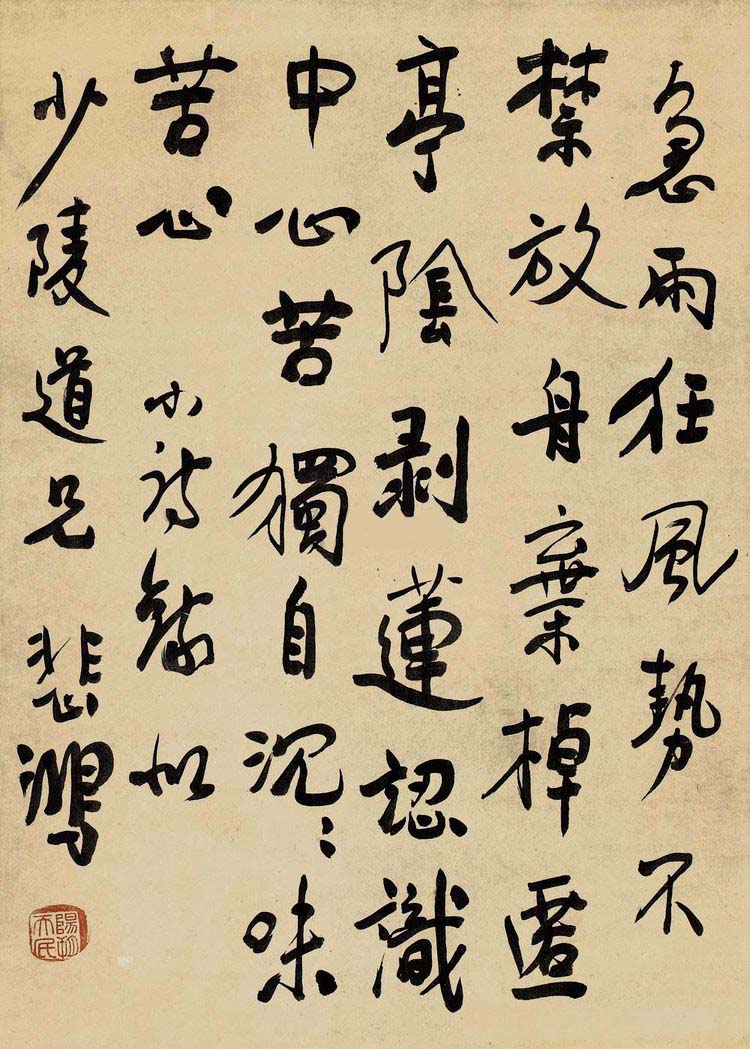 急雨狂風勢不
禁放舟棄棹匿
亭陰剥蓮認識
中心苦獨自沉〻味
苦心 小詩錄似
少陵道兄 悲鴻
陽朔天民